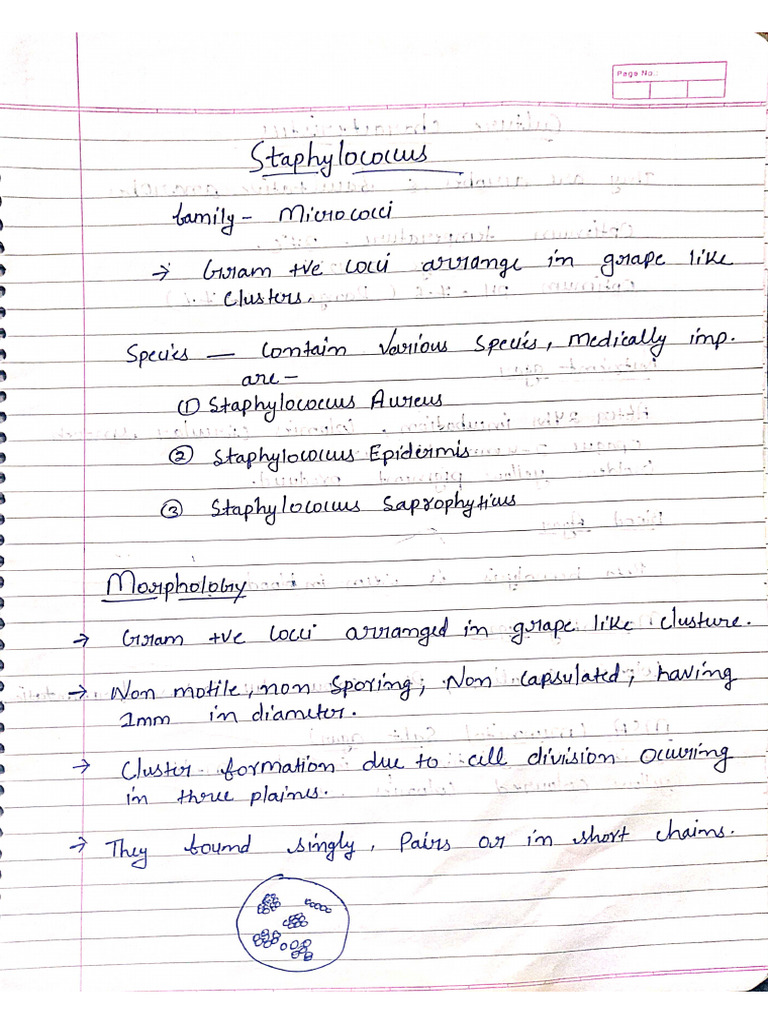 Page No.:
Staphylococcus
family - Micrococci
→ Gram +ve cocci arrange in grape like
Clusters.
Species — Contain Various Species, Medically imp.
are -
① Staphylococcus Aureus
② Staphylococcus Epidermis
③ Staphylococcus Saprophyticus
Morphology
→ Gram +ve Cocci arranged in grape like clusture.
→ Non motile, non Sporing; Non capsulated; having
1mm in diameter.
→ Cluster formation due to cell division Occuring
in three plaines.
→ They found singly, Pairs or in short chains.